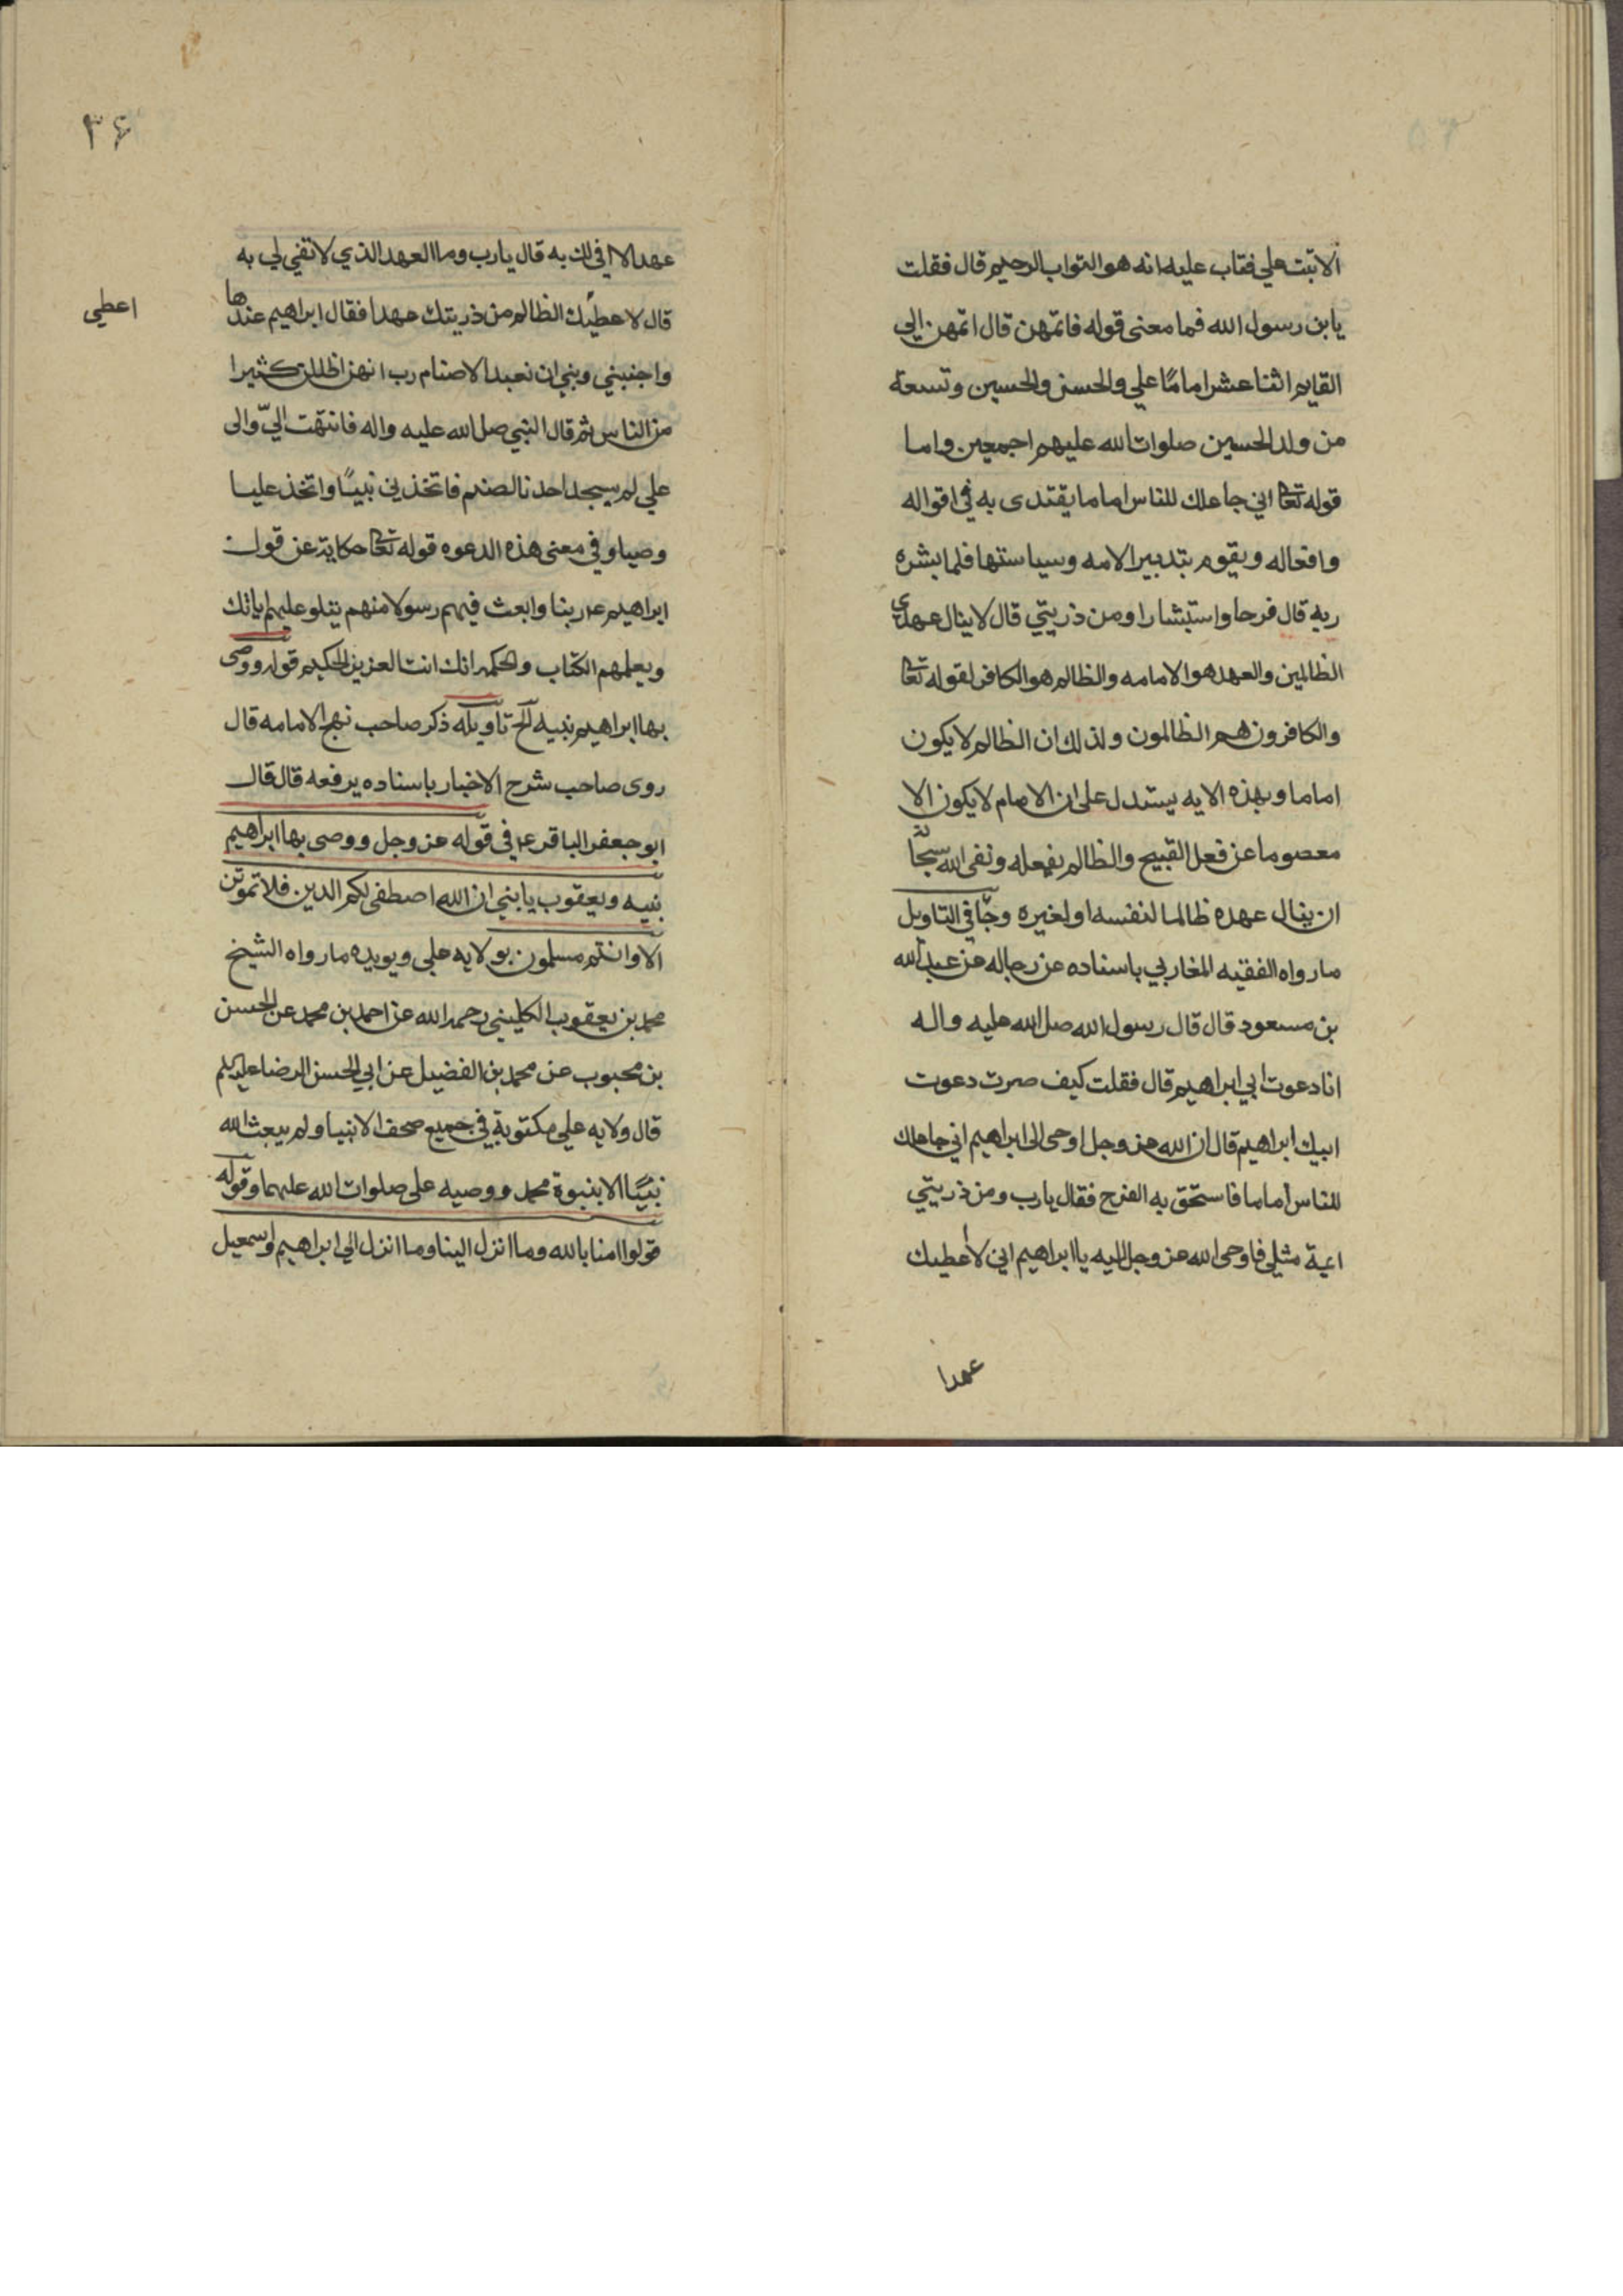 الا تبت علي فتاب عليه انه هو التواب الرحيم قال فقلت
يا بن رسول الله فما معنى قوله فاتمهن قال اتمهن الي
القايم اثنا عشر اماما علي والحسن والحسين وتسعة
من ولد الحسين صلوات الله عليهم اجمعين واما
قوله تعا اني جاعلك للناس اماما يقتدى به في اقواله
وافعاله ويقوم بتدبير الامه وسياستها فلما بشره
ربه قال فرحا واستبشارا ومن ذريتي قال لا ينال عهدي
الظالمين والعهد هو الامامه والظالم هو الكافر لقوله تعا
والكافرون هم الظالمون ولذلك ان الظالم لا يكون
اماما وبهذه الايه يستدل على ان الامام لا يكون الا
معصوما عن فعل القبيح والظالم يفعله ونفى الله سبحا
ان ينال عهده ظالما لنفسه او لغيره وجا في التاويل
ما رواه الفقيه المغاربي باسناده عن رجاله عن عبد الله
بن مسعود قال قال رسول الله صل الله عليه واله
انا دعوت ابي ابراهيم قال فقلت كيف صرت دعوت
ابيك ابراهيم قال ان الله عز وجل اوحى الى ابراهيم اني جاعلك
للناس اماما فاستحق به الفرح فقال يا رب ومن ذريتي
ايمة مثلي فاوحى الله عز وجل اليه يا ابراهيم اني لا اعطيك
عهدا
٣۶
عهدا لا افي لك به قال يا رب وما العهد الذي لا تفي لي به
قال لا عطيك الظالم من ذريتك عهدا فقال ابراهيم عندها
اعطي
واجنبني وبني ان نعبد الاصنام رب انهن اظللن كثيرا
من الناس ثم قال النبي صل الله عليه واله فانتهت اليّ والى
علي لم يسجد احدنا لصنم فاتخذني نبيًا واتخذ عليا
وصيا وفي معنى هذه الدعوه قوله تعا حكاية عن قول
ابراهيم ع ربنا وابعث فيهم رسولا منهم يتلو عليهم اياتك
ويعلمهم الكتاب والحكمه انك انت العزيز الحكيم قوله ووصى
بها ابراهيم بنيه الخ تاويله ذكر صاحب نهج الامامه قال
روى صاحب شرح الاخبار باسناده يرفعه قال قال
ابو جعفر الباقر ع في قوله عز وجل ووصى بها ابراهيم
بنيه ويعقوب يا بني ان الله اصطفى لكم الدين فلا تموتن
الا وانتم مسلمون بولايه علي ويويده ما رواه الشيخ
محمد بن يعقوب الكليني رحمه الله عن احمد بن محمد عن الحسن
بن محبوب عن محمد بن الفضيل عن ابي الحسن الرضا عليه السلم
قال ولايه علي مكتوبة في جميع صحف الانبيا ولم يبعث الله
نبيًا الا بنبوة محمد ووصيه على صلوات الله عليهما وقوله
قولوا امنا بالله وما انزل الينا وما انزل الي ابراهيم واسمعيل